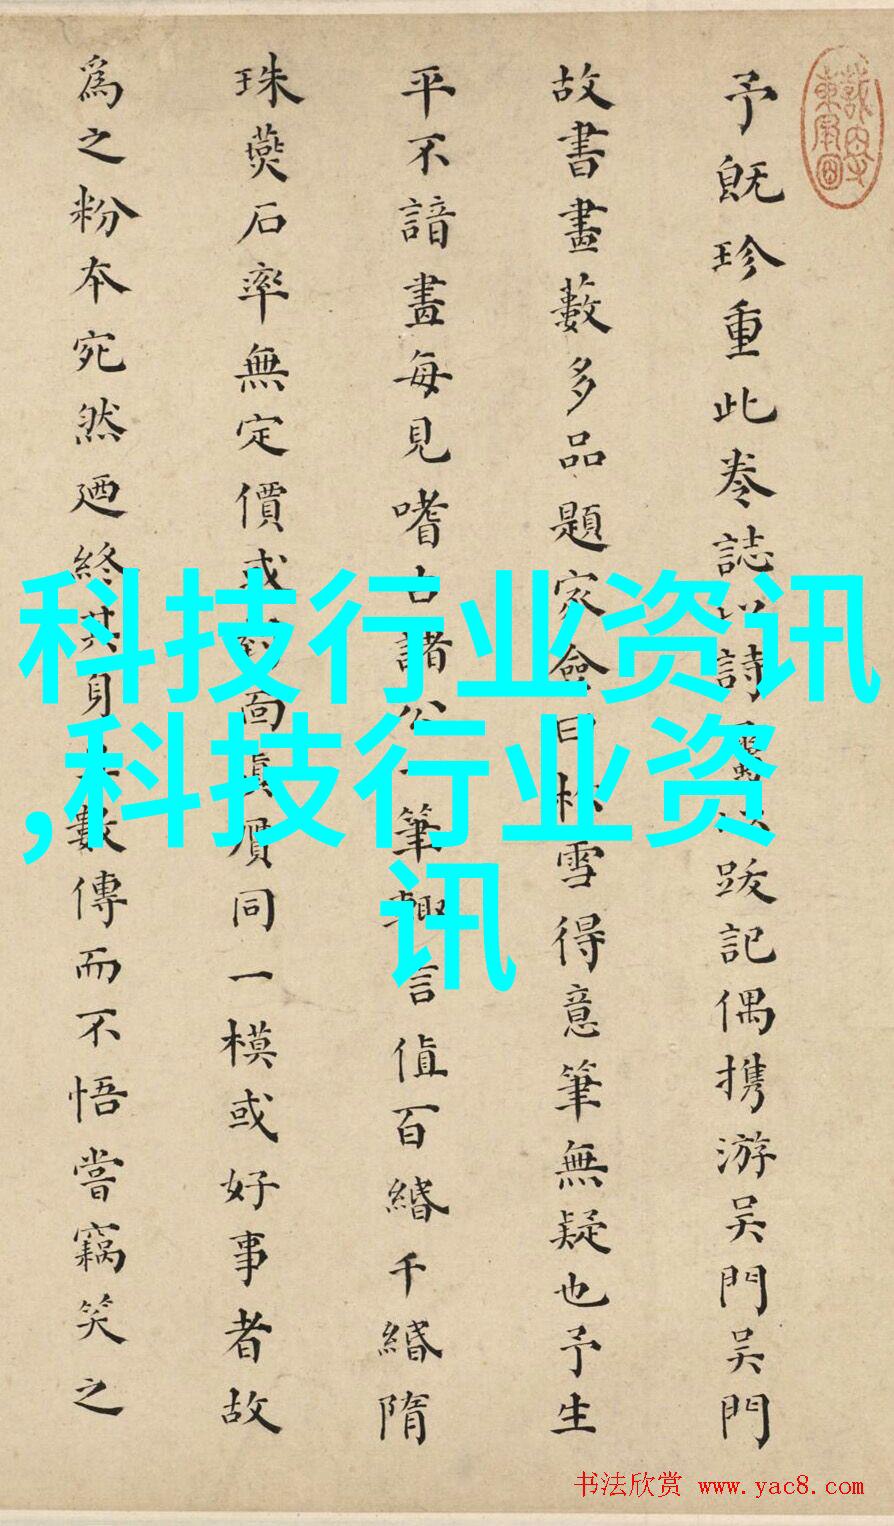 予既珍重此卷誌以詩霝以跋記偶攜游吴門吴門
故書畫藪多品題家僉曰松雪得意筆無疑也予生
平不諳畫每見嗜古諸公一筆輙言值百緡千緡隋
珠燕石率無定價或對面真贋同一模或好事者故
為之粉本宛然廼終其身數傳而不悟嘗竊笑之
科技行业资讯
,科技行业资
讯
书法欣赏 www.yac8.com